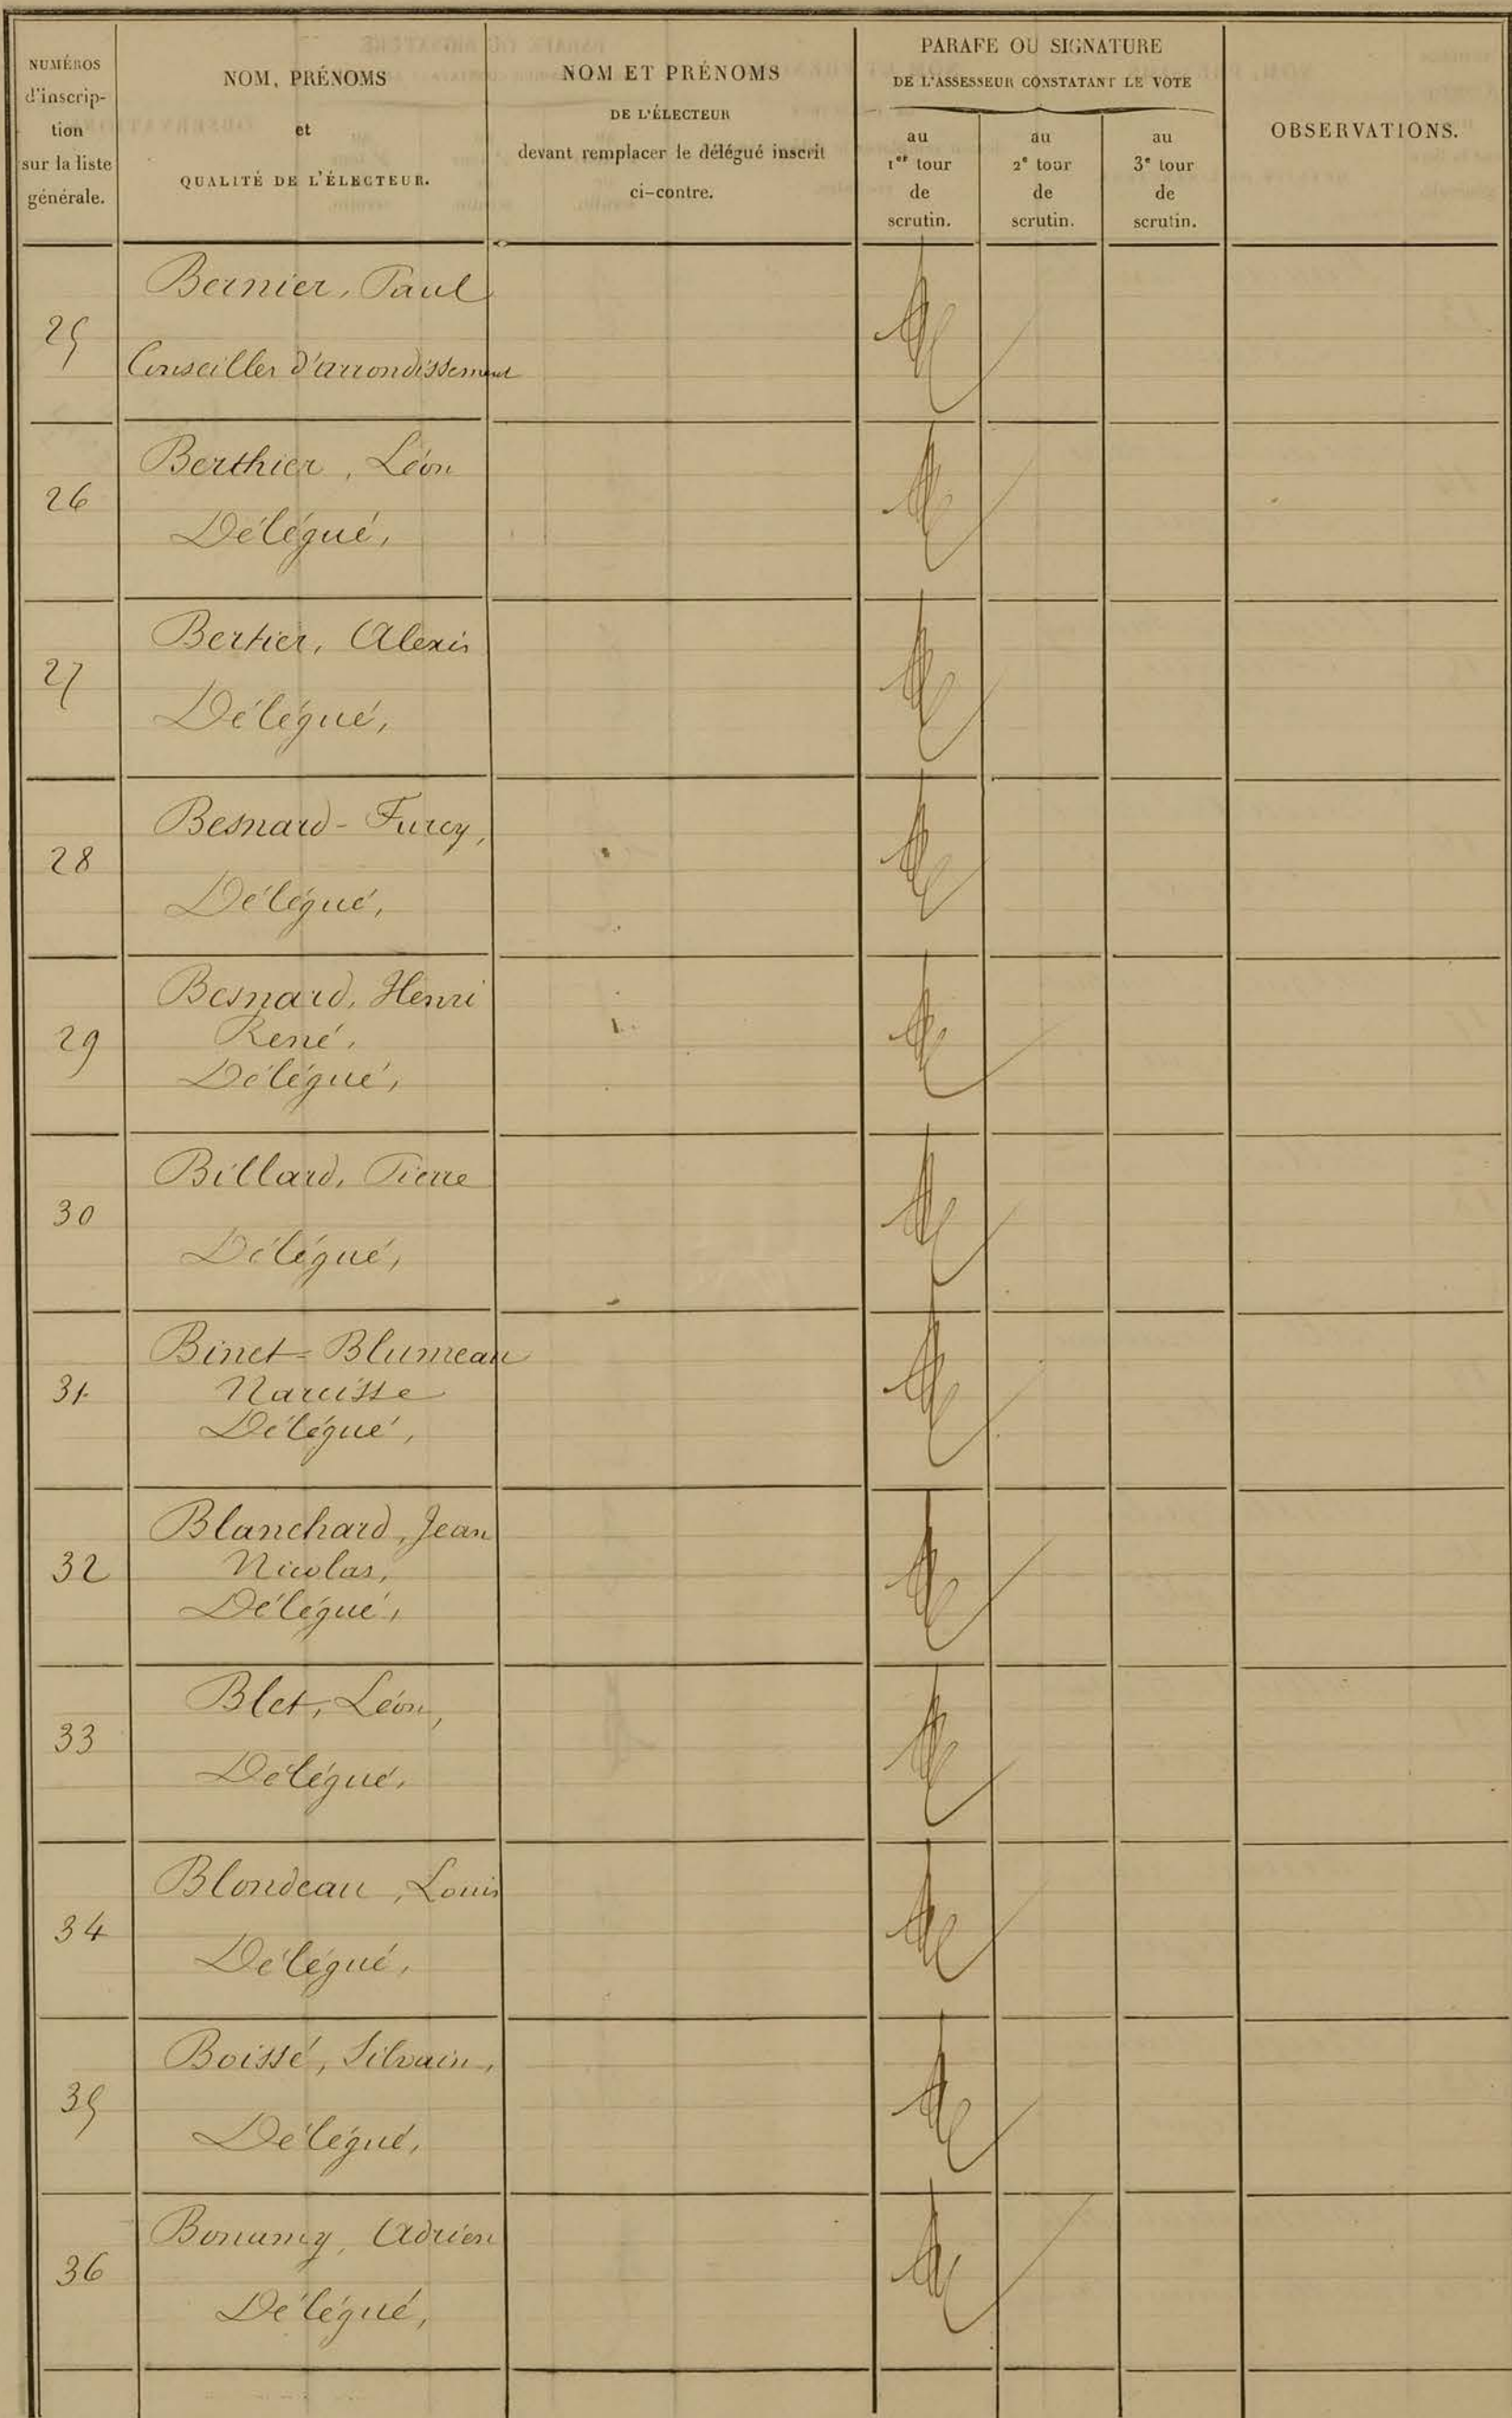 NUMÉROS
d'inscrip-
tion
sur la liste
générale.
NOM, PRÉNOMS
et
QUALITÉ DE L'ÉLECTEUR.
NOM ET PRÉNOMS
DE L'ÉLECTEUR
devant remplacer le délégué inscrit
ci-contre.
PARAFE OU SIGNATURE
DE L'ASSESSEUR CONSTATANT LE VOTE
au
1er tour
de
scrutin.
au
2e tour
de
scrutin.
au
3e tour
de
scrutin.
OBSERVATIONS.
25
Bernier, Paul
Conseiller d'arrondissement
26
Berthier, Léon
Délégué,
27
Bertier, Alexis
Délégué,
28
Besnard-Furcy,
Délégué,
29
Besnard, Henri
René,
Délégué,
30
Billard, Pierre
Délégué,
31
Binet=Blumeau
Narcisse
Délégué,
32
Blanchard, Jean
Nicolas,
Délégué,
33
Blet, Léon,
Délégué,
34
Blondeau, Louis
Délégué,
35
Boissé, Silvain,
Délégué,
36
Bonamy, Adrien
Délégué,